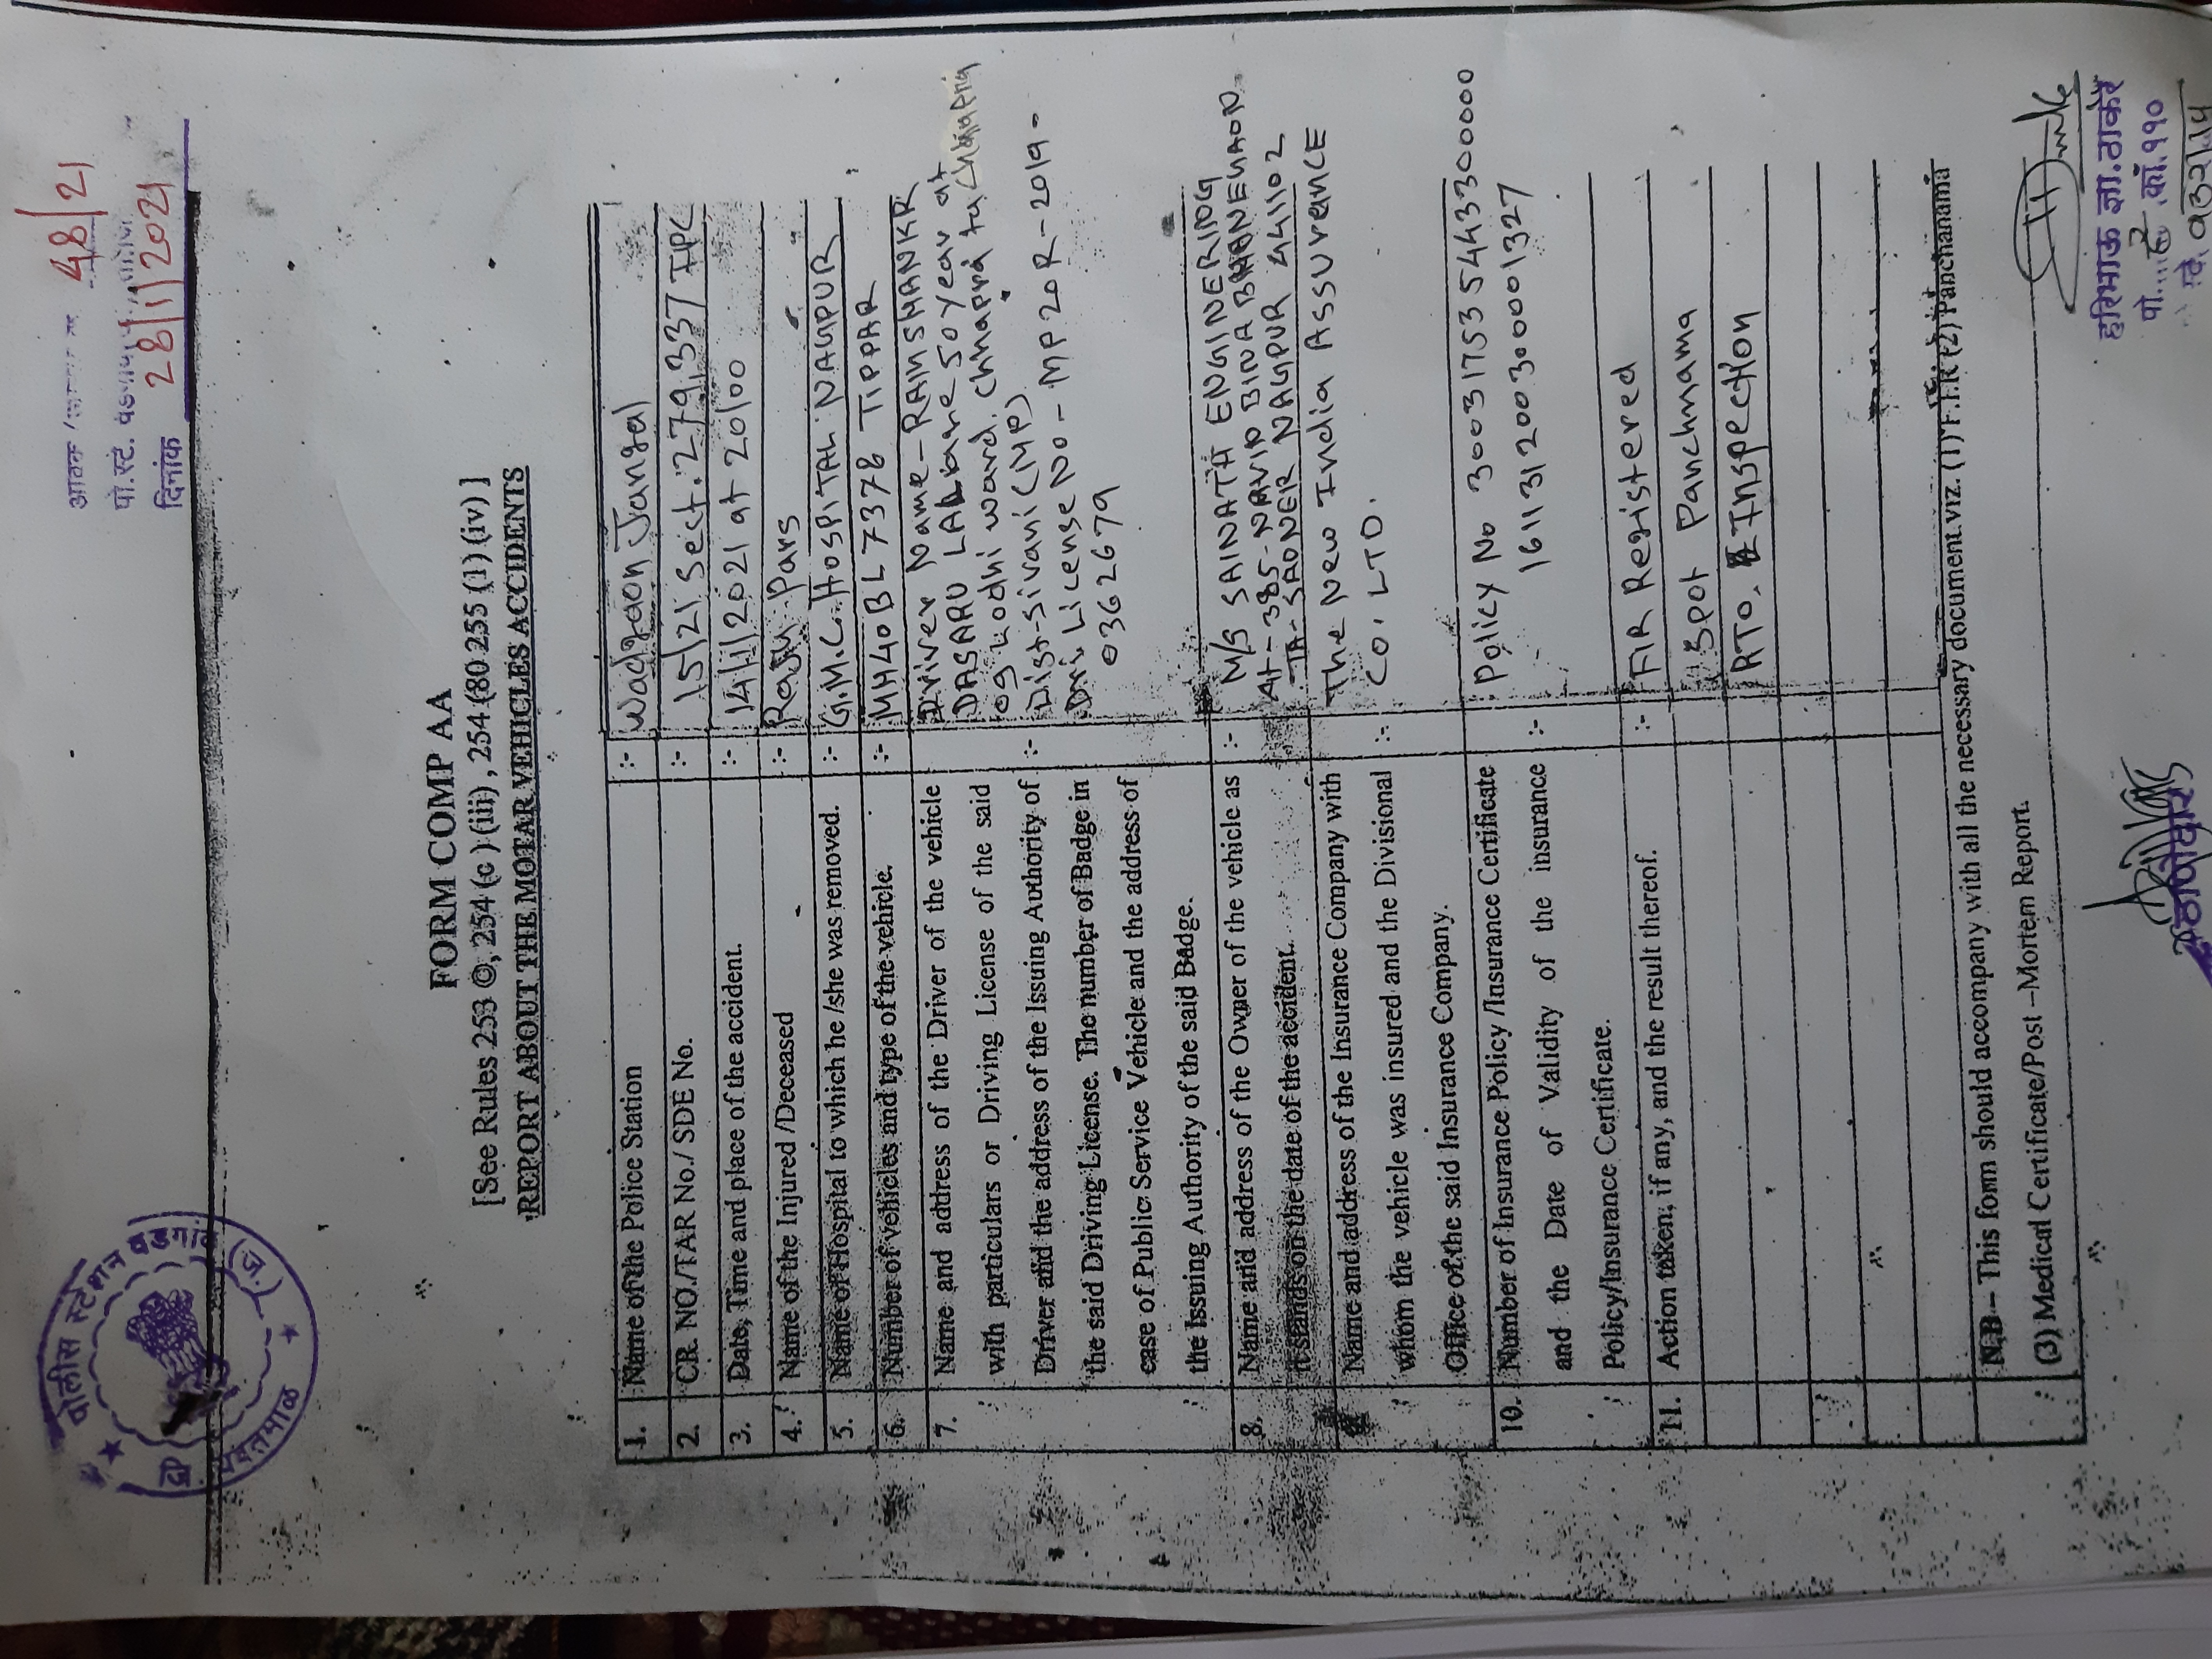 पोलीस स्टेशन वडगांव (ज.)
यवतमाळ
48/21
पो.स्टे. वडगाव
दिनांक 28/1/2021
FORM COMP AA
[See Rules 253 ©, 254 (c ) (iii) , 254 (80 255 (1) (iv) ]
REPORT ABOUT THE MOTAR VEHICLES ACCIDENTS
1. Name of the Police Station :- Wadgaon Jangal
2. CR. NO./TAR No./ SDE No. :- 15/21 Sect. 279,337 IPC
3. Date, Time and place of the accident. :- 14/1/2021 at 20/00
4. Name of the Injured /Deceased :- Raju Pars
5. Name of Hospital to which he /she was removed. :- G.M.C. HOSPITAL NAGPUR
6. Number of vehicles and type of the vehicle. :- MH40BL7378 TIPPAR
7. Name and address of the Driver of the vehicle
with particulars or Driving License of the said
Driver and the address of the Issuing Authority of
the said Driving License. The number of Badge in
case of Public Service Vehicle and the address of
the Issuing Authority of the said Badge.
:- Driver Name-RAMSHANKR
DASARU 50 year at
09 Lodhi ward. Chhapra ta Chhapra
Dist-Sivani (MP)
Driv License No- MP20R-2019-
0362679
8. Name and address of the Owner of the vehicle as
it stands on the date of the accident.
:- M/S SAINATH ENGINERING
At-385-NAVIN BINA BHANEMAON
TA-SAONER NAGPUR 441102
Name and address of the Insurance Company with
whom the vehicle was insured and the Divisional
Office of the said Insurance Company.
:- The New India Assurance
CO. LTD.
10. Number of Insurance Policy /Iusurance Certificate
and the Date of Validity of the insurance
Policy/Insurance Certificate.
:- Policy No 30031753544330000
161131200300001327
11. Action taken, if any, and the result thereof. :- FIR Registered
Spot Panchnama
RTO. Inspection
N.B – This form should accompany with all the necessary document viz. (1) F.I.R (2) Panchanama
(3) Medical Certificate/Post –Mortem Report.
हरिभाऊ ज्ञा.ठाकरे
पो. कॉ.११०
ठाणेदार